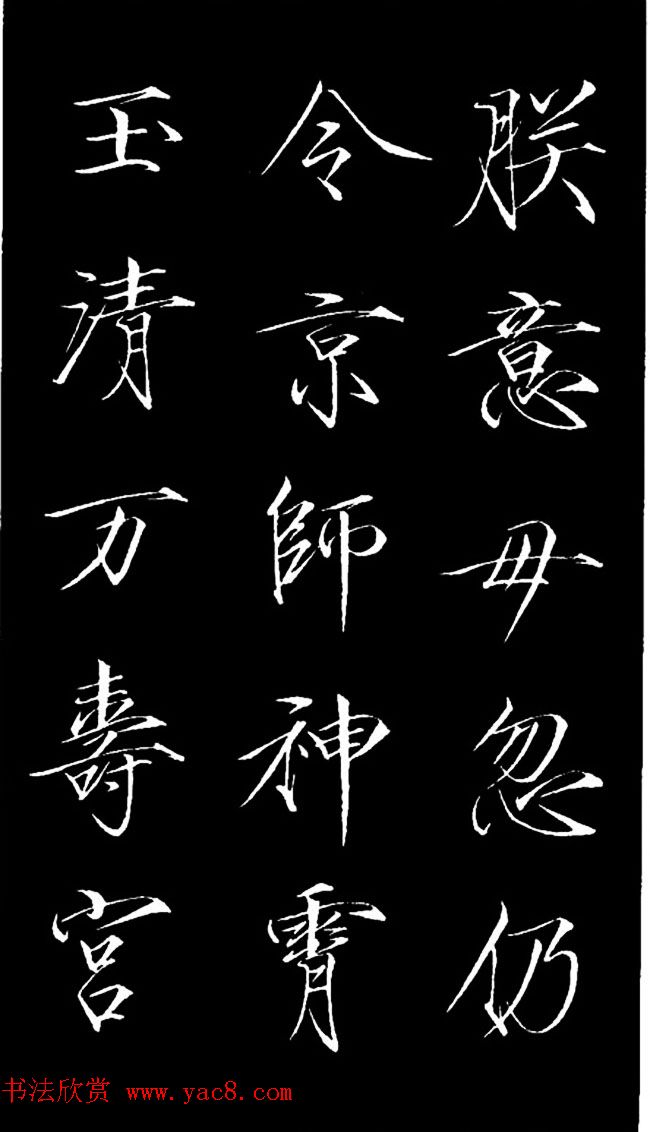 朕意毋忽仍
令京師神霄
玉清万壽宫
书法欣赏 www.yac8.com